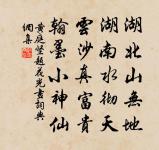 湖北山無地
湖南水彻天
雲沙真富貴
翰墨小神仙
黄庭堅題花光畫詞典
網集